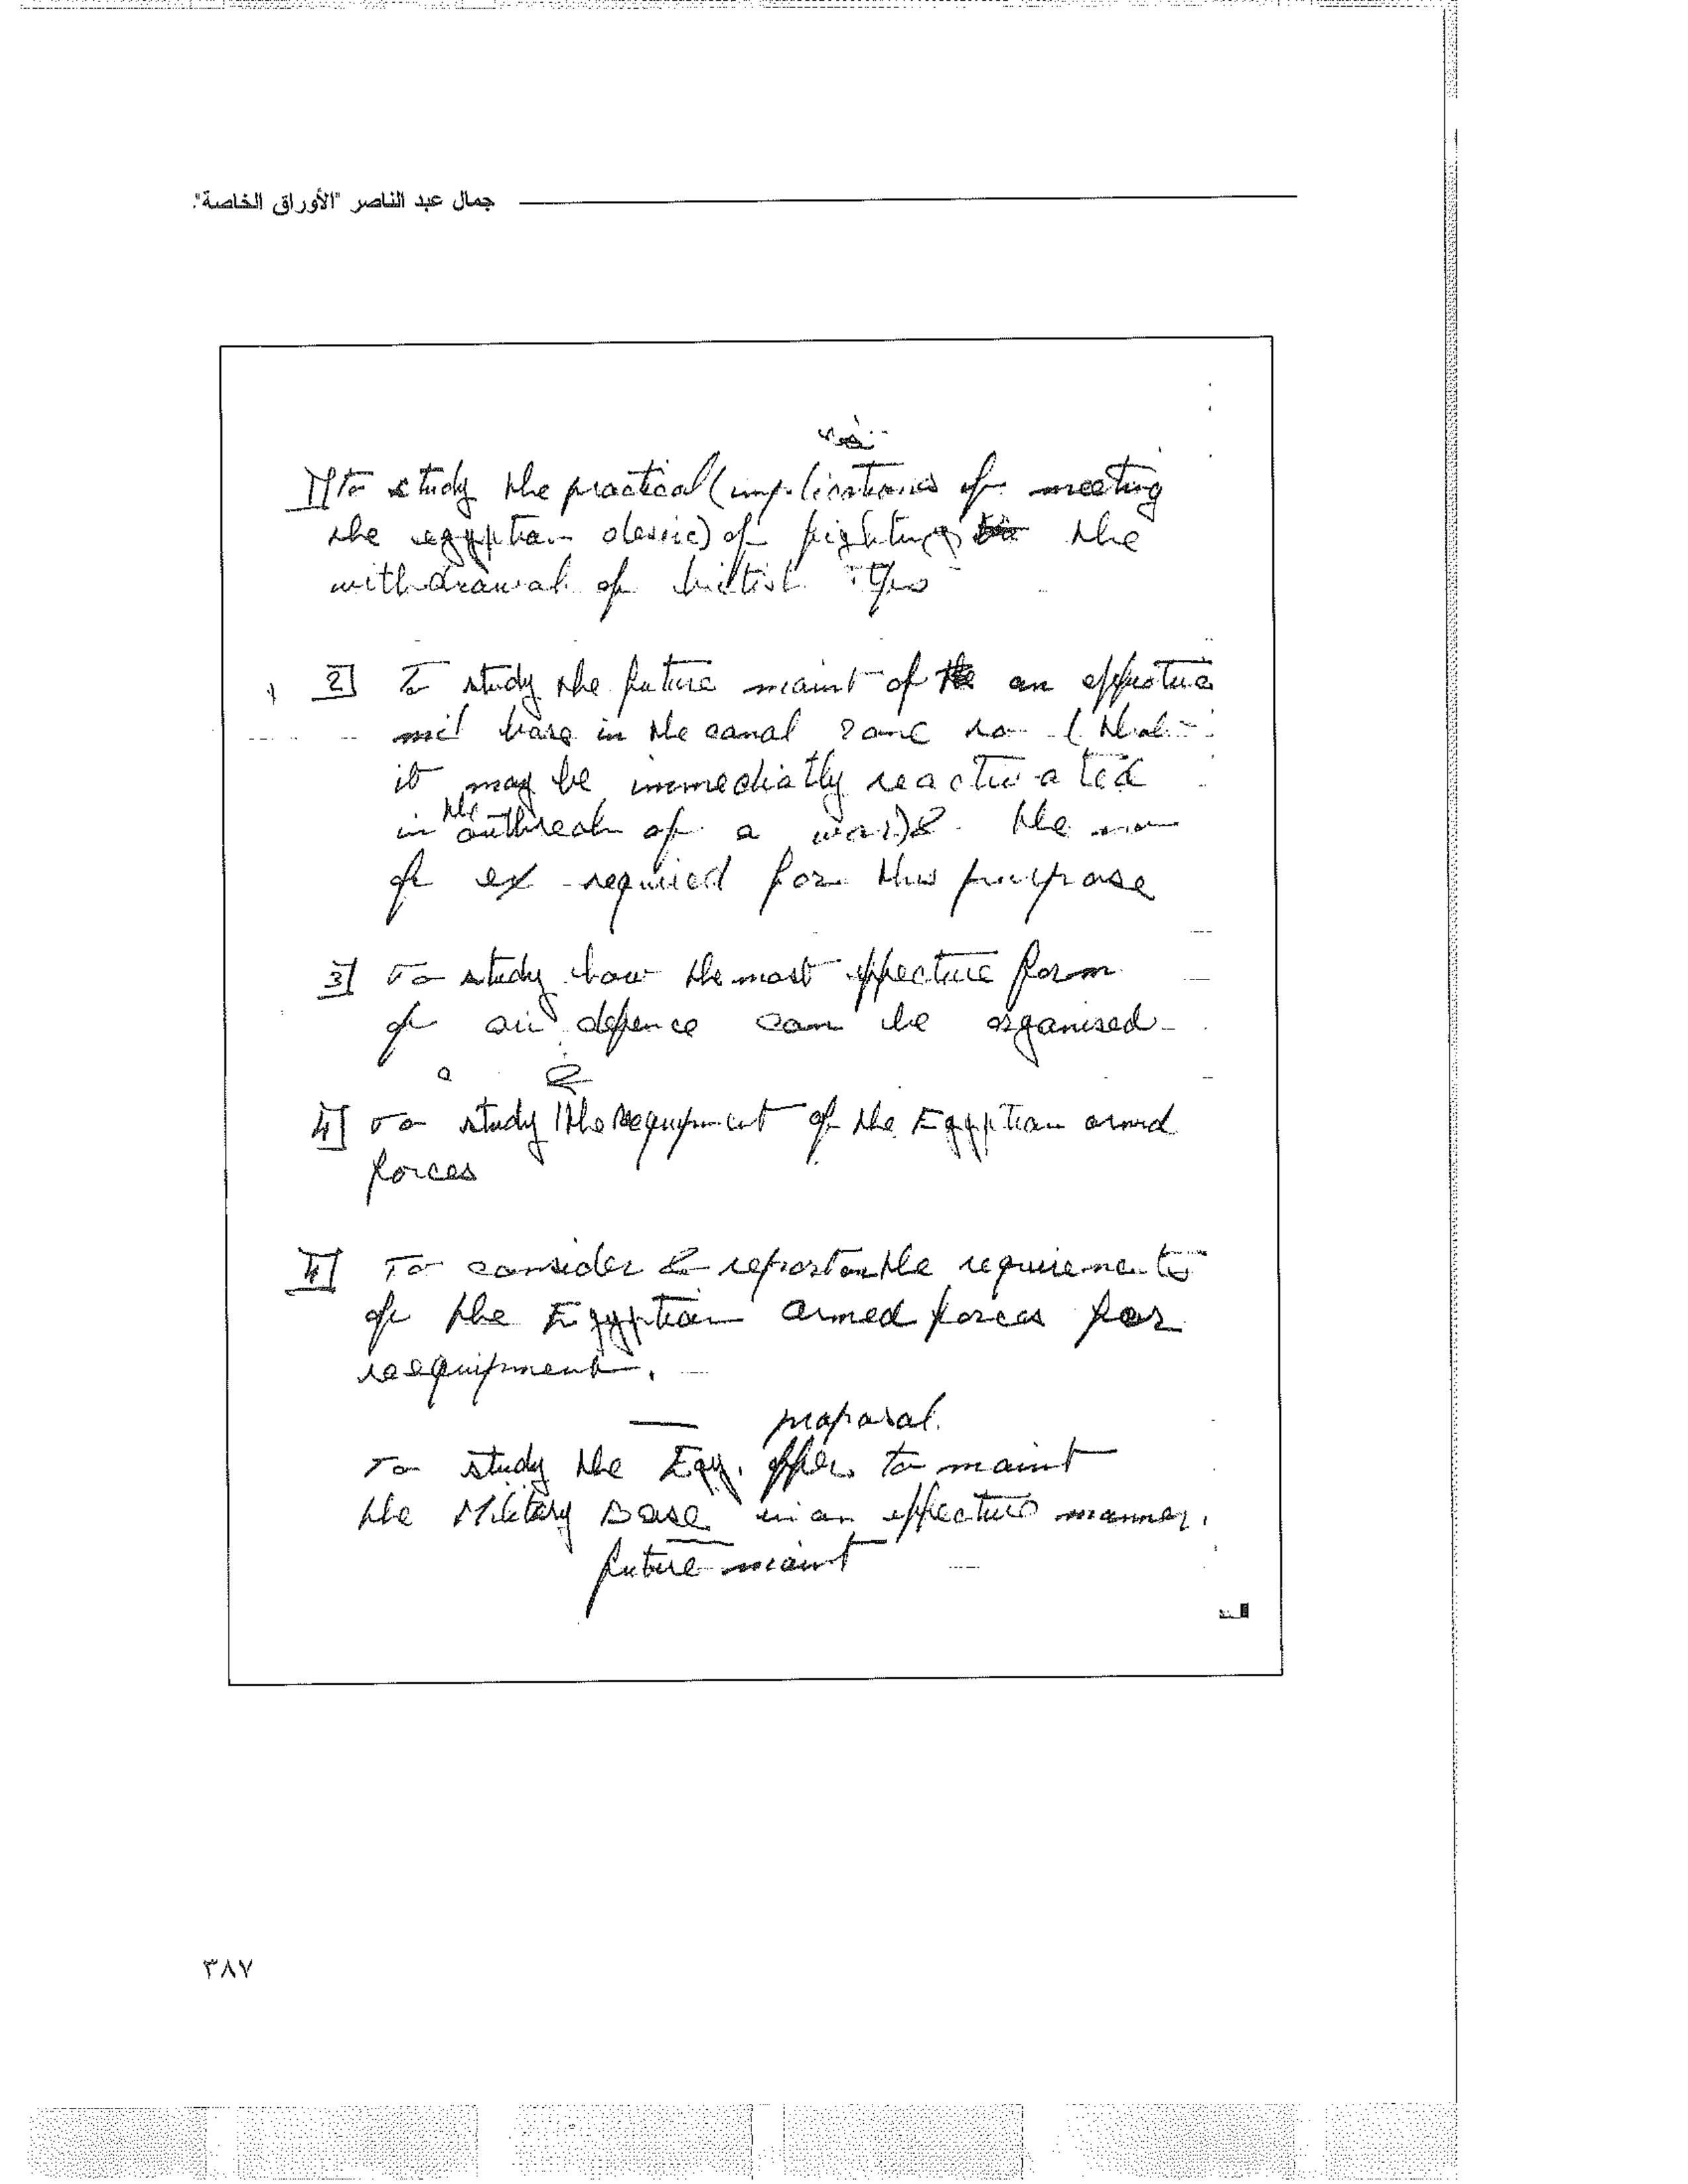 جمال عبد الناصر "الأوراق الخاصة".
1] To study the practical (implications of meeting
the egyptian desire) of the
withdrawal of british
2] To study the future maint of an effective
mil base in the canal zone so (that
it may be immediatly reactivated
in the outbreak of a war) & the no
of ex required for this purpose
3] To study how the most effective form
of air defence can be organised
4] To study the requipment of the Egyptian armed
forces
4] To consider & report on the requirements
of the Egyptian armed forces for
reequipment.
proposal.
To study the Egy. offer to maint
the Military Base in an effective manner.
future maint
٣٨٧